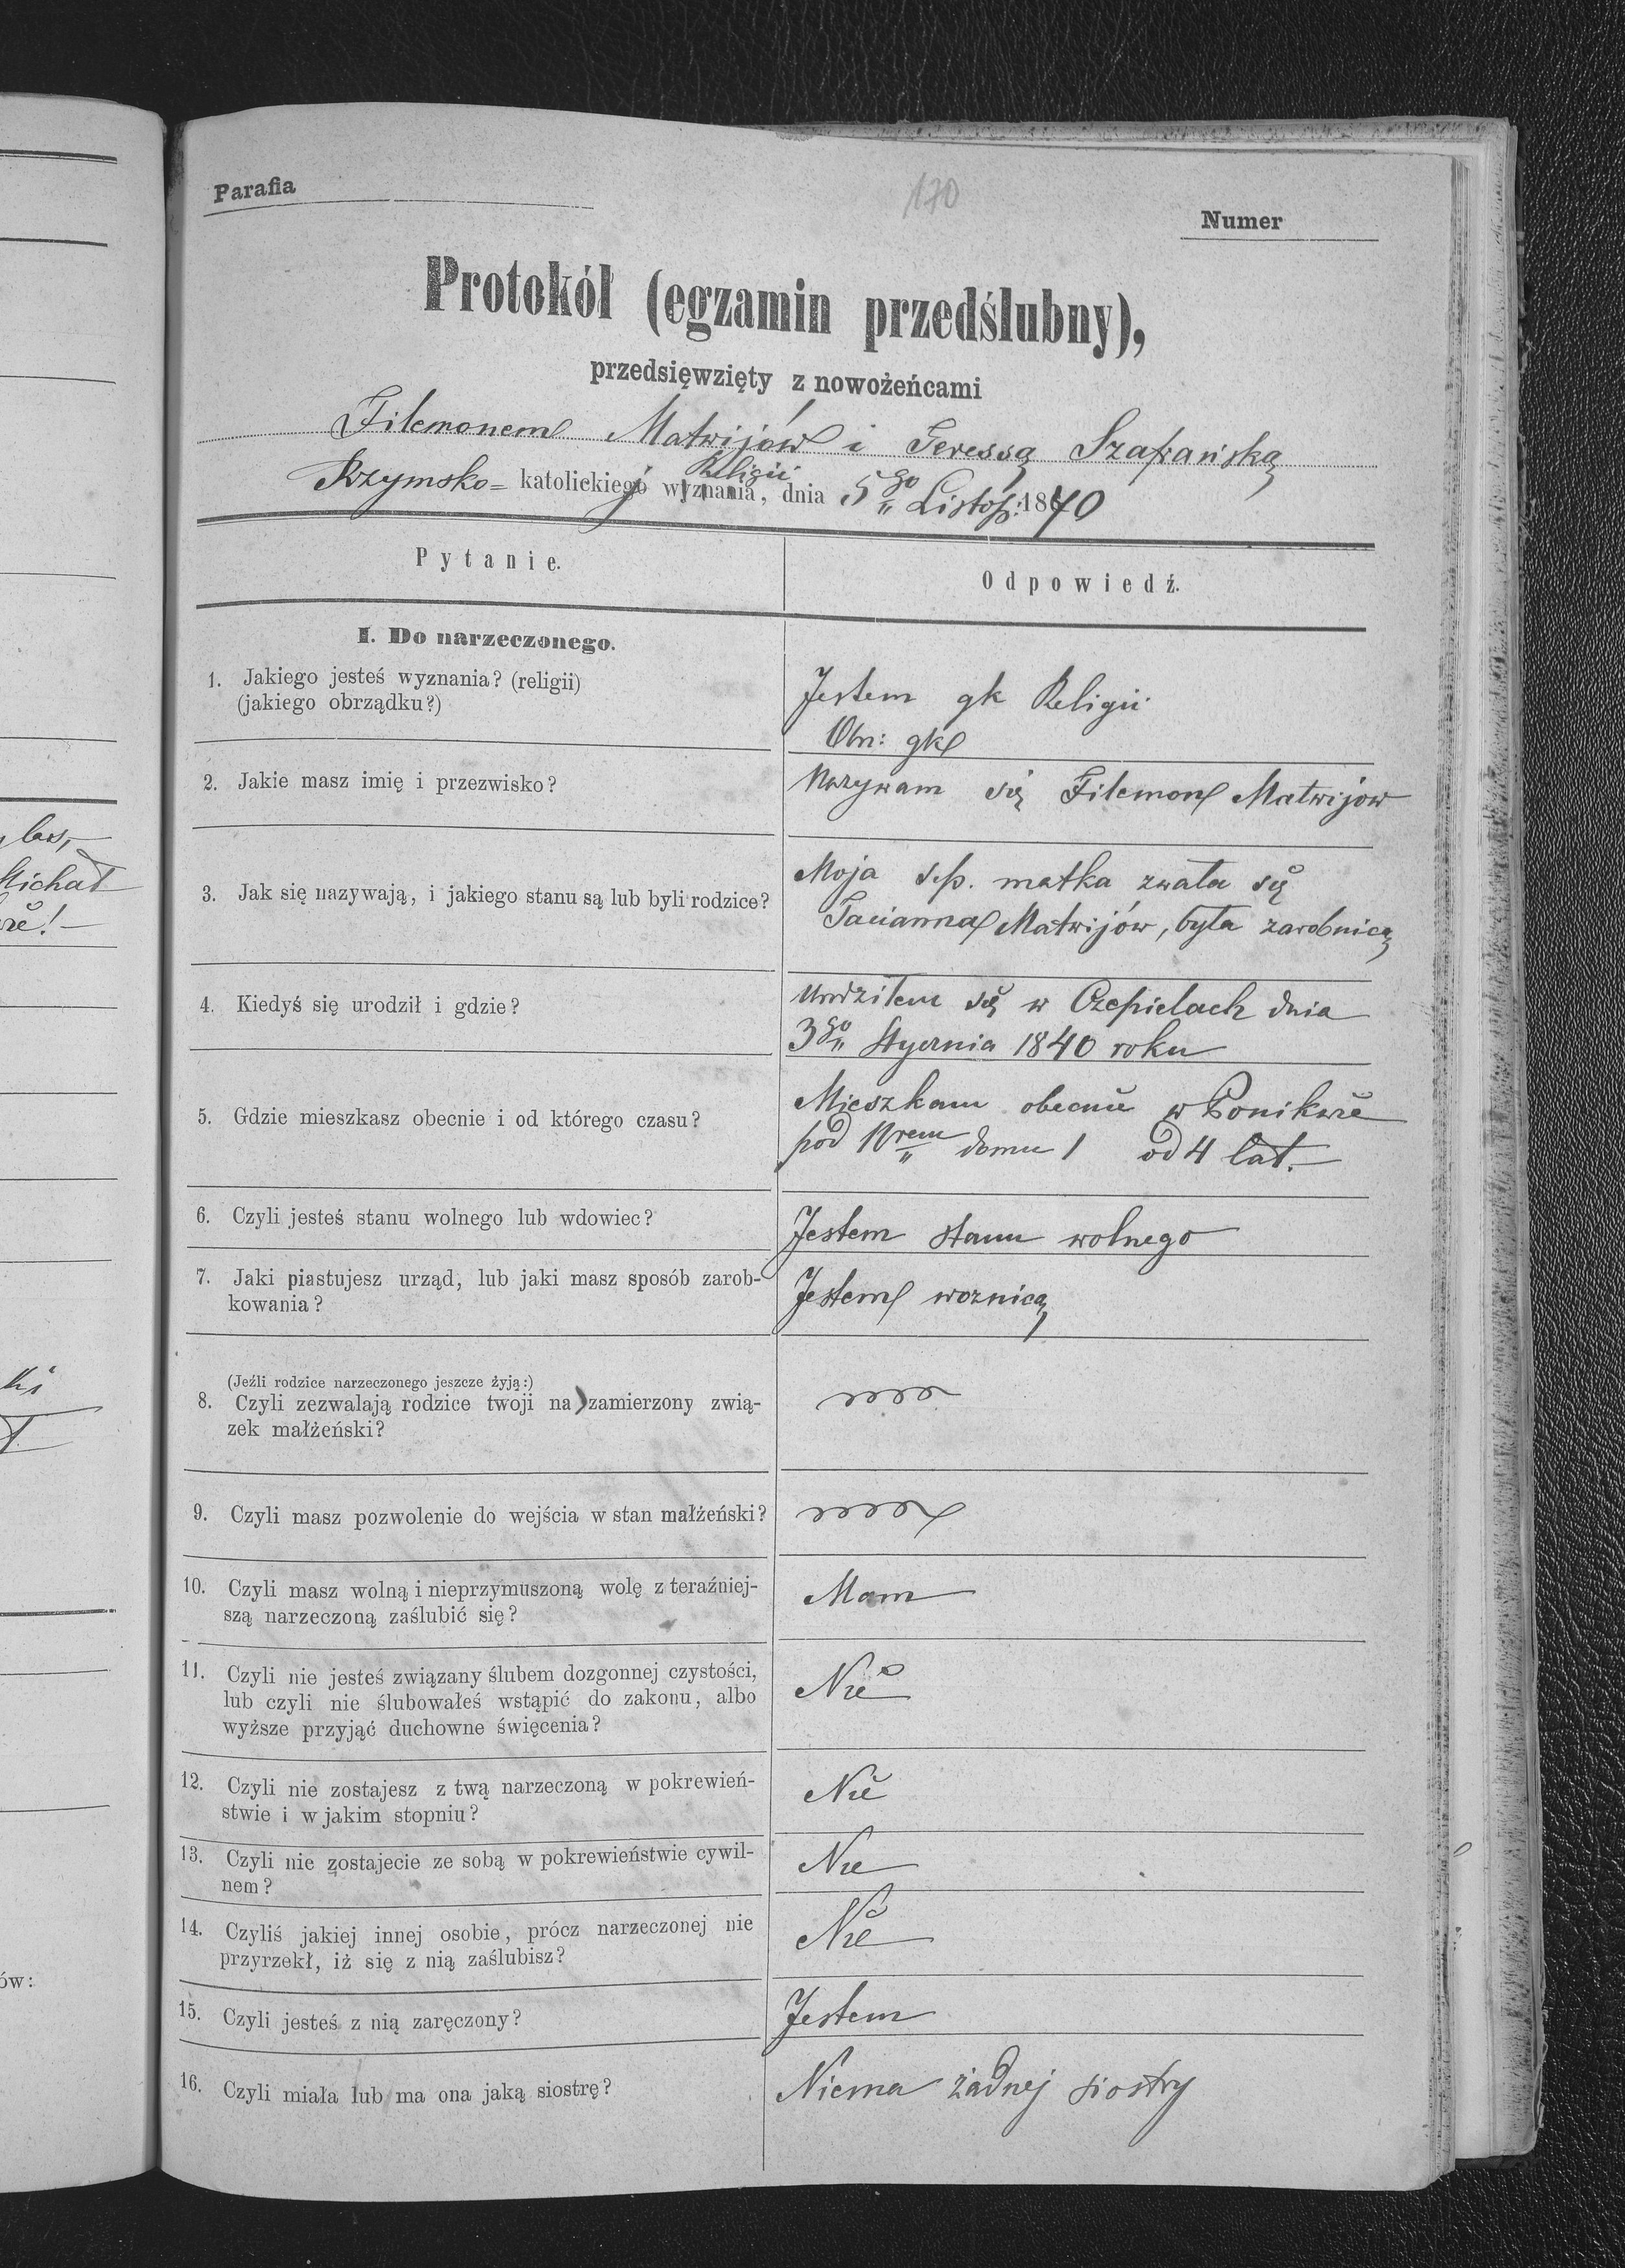 Parafia
170
Numer
Protokół (egzamin przedślubny),
przedsięwzięty z nowożeńcami
Filemonem Matwijów i Teressą Szafrańską
Religii
Rzymsko= katolickiej wyznania, dnia 5go Listop: 1870
Pytanie.
Odpowiedź.
I. Do narzeczonego.
1. Jakiego jesteś wyznania? (religii)
(jakiego obrządku?)
Jestem gk Religii
Obrz: gk
2. Jakie masz imię i przezwisko?
Nazywam się Filemon Matwijow
3. Jak się nazywają, i jakiego stanu są lub byli rodzice?
Moja s.p. matka zwała się
Tacianna Matwijów, była zarobnicą
4. Kiedyś się urodził i gdzie?
Urodziłem się w Czepielach dnia
3go Stycznia 1840 roku
5. Gdzie mieszkasz obecnie i od którego czasu?
Mieszkam obecnie w Ponikwie
pod Nrem domu 1 od 4 lat.
6. Czyli jesteś stanu wolnego lub wdowiec?
Jestem stanu wolnego
7. Jaki piastujesz urząd, lub jaki masz sposób zarob-
kowania?
Jestem woznicą
(Jeźli rodzice narzeczonego jeszcze żyją:)
8. Czyli zezwalają rodzice twoji na zamierzony zwią-
zek małżeński?
9. Czyli masz pozwolenie do wejścia w stan małżeński?
10. Czyli masz wolną i nieprzymuszoną wolę z teraźniej-
szą narzeczoną zaślubić się?
Mam
11. Czyli nie jesteś związany ślubem dozgonnej czystości,
lub czyli nie ślubowałeś wstąpić do zakonu, albo
wyższe przyjąć duchowne święcenia?
Nie
12. Czyli nie zostajesz z twą narzeczoną w pokrewień-
stwie i w jakim stopniu?
Nie
13. Czyli nie zostajecie ze sobą w pokrewieństwie cywil-
nem?
Nie
14. Czyliś jakiej innej osobie, prócz narzeczonej nie
przyrzekł, iż się z nią zaślubisz?
Nie
15. Czyli jesteś z nią zaręczony?
Jestem
16. Czyli miała lub ma ona jaką siostrę?
Niema żadnej siostry